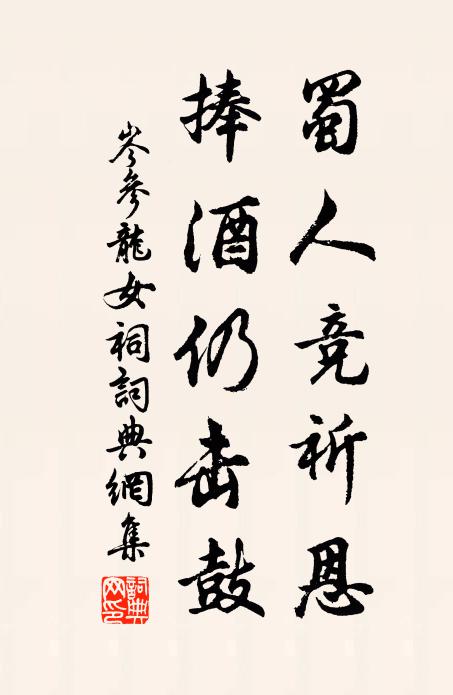 蜀人竞祈恩
捧酒仍击鼓
岑參龍女祠詞典網集
詞典
网印